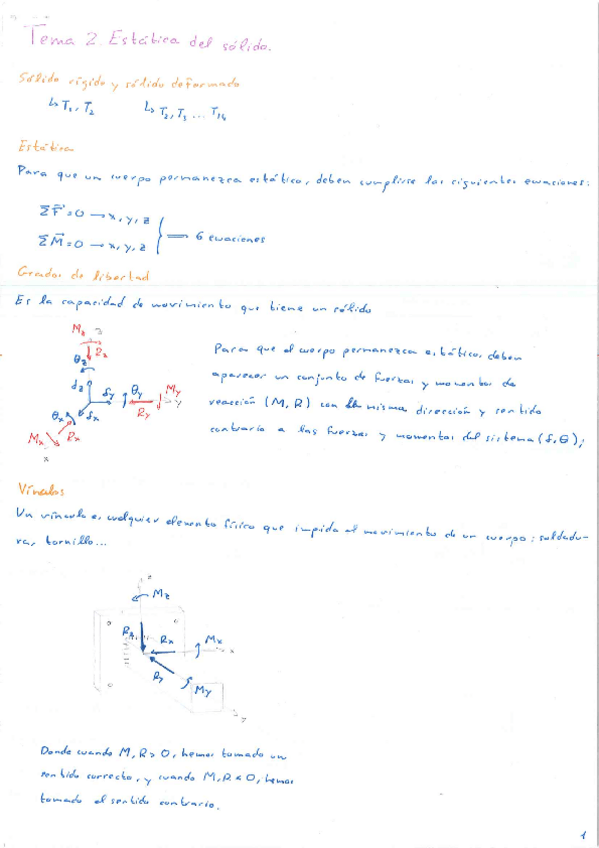 Tema 2. Estática del sólido.
Sólido rígido y sólido deformado
↳ T₁, T₂ ↳ T₂, T₃ ... T₁₄
Estática
Para que un cuerpo permanezca estático, deben cumplirse las siguientes ecuaciones:
ΣF⃗=0 → x, y, z
ΣM⃗=0 → x, y, z
6 ecuaciones
Grados de libertad
Es la capacidad de movimiento que tiene un sólido
Mz z
Rz
θz
δz δy θy My
Ry y
θx δx
Mx Rx
x
Para que el cuerpo permanezca estático, deben
aparecer un conjunto de fuerzas y momentos de
reacción (M, R) con la misma dirección y sentido
contrario a las fuerzas y momentos del sistema (δ, θ);
Vínculos
Un vínculo es cualquier elemento físico que impida el movimiento de un cuerpo: soldadu-
ra, tornillo...
z
Mz
Rz Rx Mx
x
Ry
My
y
Donde cuando M, R > 0, hemos tomado un
sentido correcto, y cuando M, R < 0, hemos
tomado el sentido contrario.
1